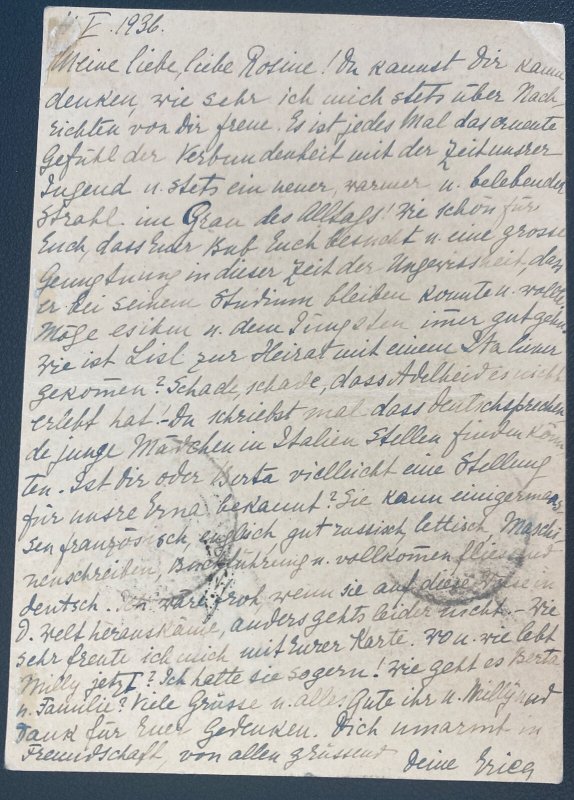 V. 1936.
Meine liebe, liebe Rosine! Du kannst Dir kaum
denken, wie sehr ich mich stets über Nach-
richten von Dir freue. Es ist jedes Mal das erneute
Gefühl der Verbundenheit mit der Zeit unsrer
Jugend u. stets ein neuer, warmer u. belebender
Strahl im Grau des Alltags! Wie schön für
Euch, dass Euer Bub Euch besucht u. eine grosse
Genugtuung in dieser Zeit der Ungewissheit, dass
er bei seinem Studium bleiben konnte u. wollte.
Möge es ihm u. dem Jüngsten imer gut gehn.
Wie ist Lisl zur Heirat mit einem Italiener
gekomen? Schade, schade, dass Adelheid es nicht
erlebt hat! – Du schriebst mal dass deutschsprechen-
de junge Mädchen in Italien Stellen finden könn-
ten. Ist Dir oder Berta vielleicht eine Stellung
für unsre Erna bekannt? Sie kann einigermas-
sen französisch, englisch gut russisch, lettisch, Maschi-
nenschreiben, Buchführung u. vollkomen fliessend
deutsch. Ich wäre froh, wenn sie auf diese Weise in
d. Welt herauskäme, anders gehts leider nicht. – Wie
sehr freute ich mich mit Eurer Karte. Wo u. wie lebt
Willy jetzt? Ich hatte sie so gern! Wie geht es Berta
u. Familie? Viele Grüsse u. alles Gute ihr u. Willy und
Dank für Euer Gedenken. Dich umarmt in
Freundschaft, von allen grüssend Deine Erica